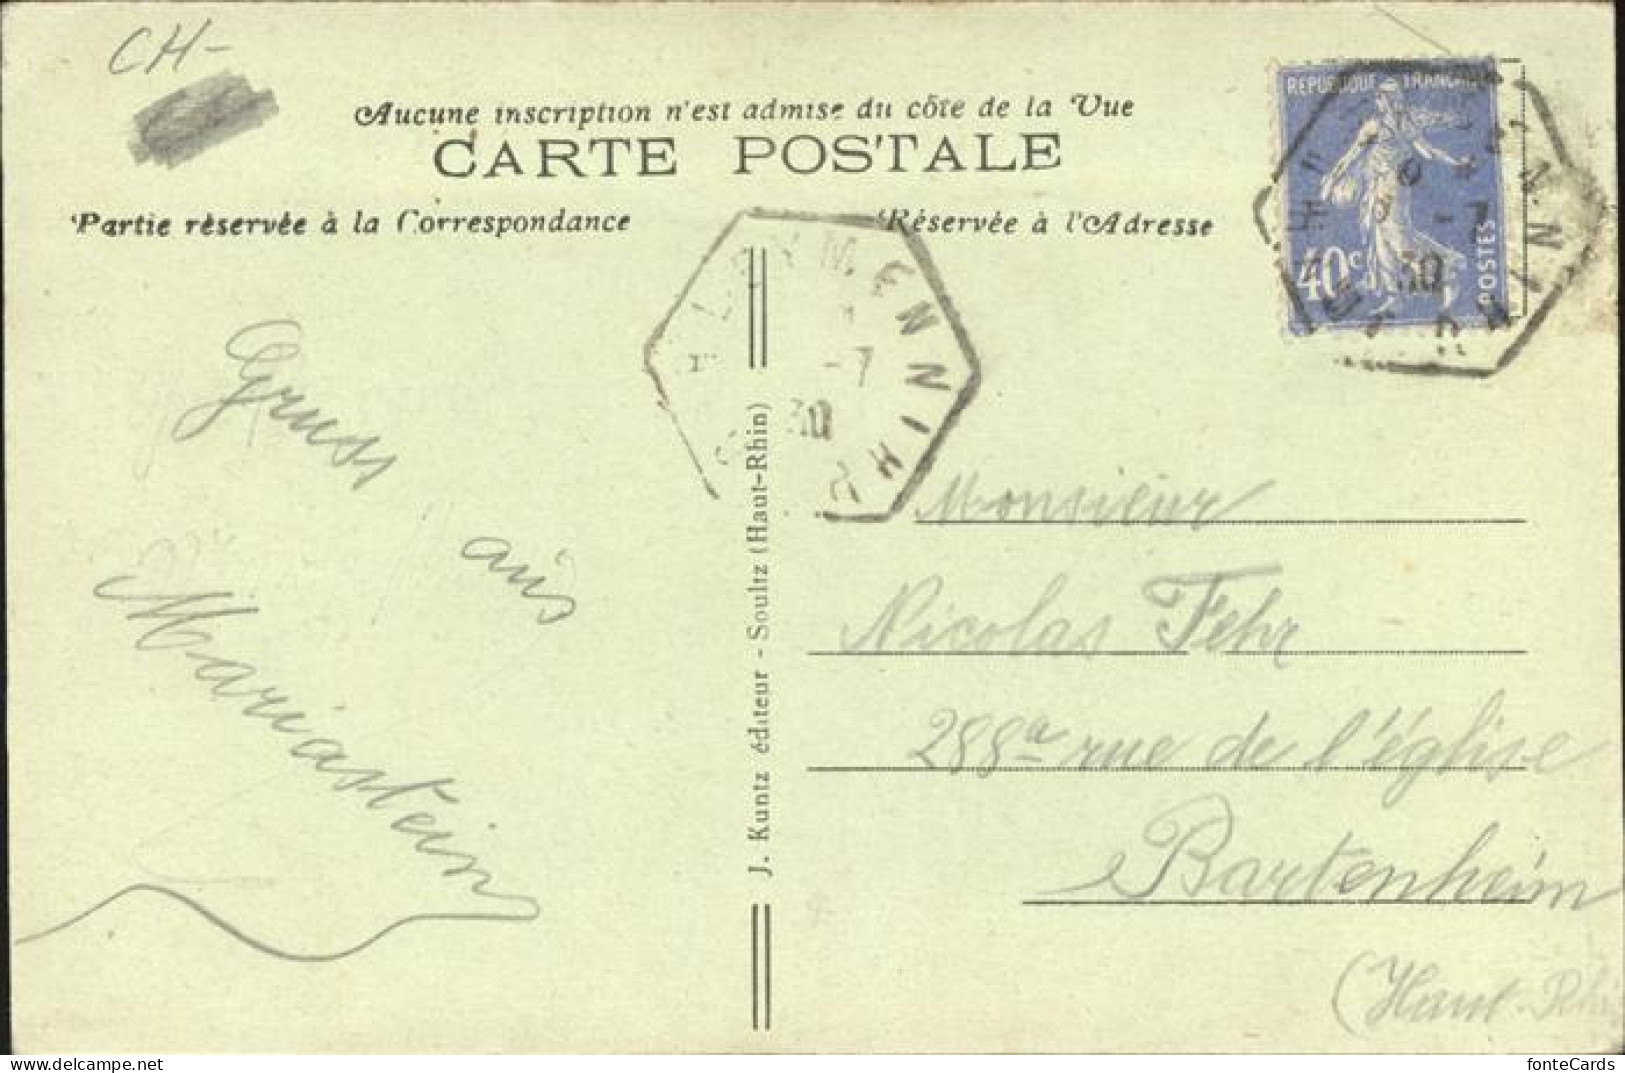 CH-
Aucune inscription n'est admise du côte de la Vue
CARTE POSTALE
Partie réservée à la Correspondance
Réservée à l'Adresse
RÉPUBLIQUE FRANÇAISE
40c
POSTES
-7
30
LEYMEN
HT RHIN
-7
30
Gruss
aus
Mariastein
J. Kuntz éditeur - Soultz (Haut-Rhin)
Monsieur
Nicolas Fehr
288a rue de l'église
Bartenheim
(Haut-Rhi
delcampe.net
fonteCards